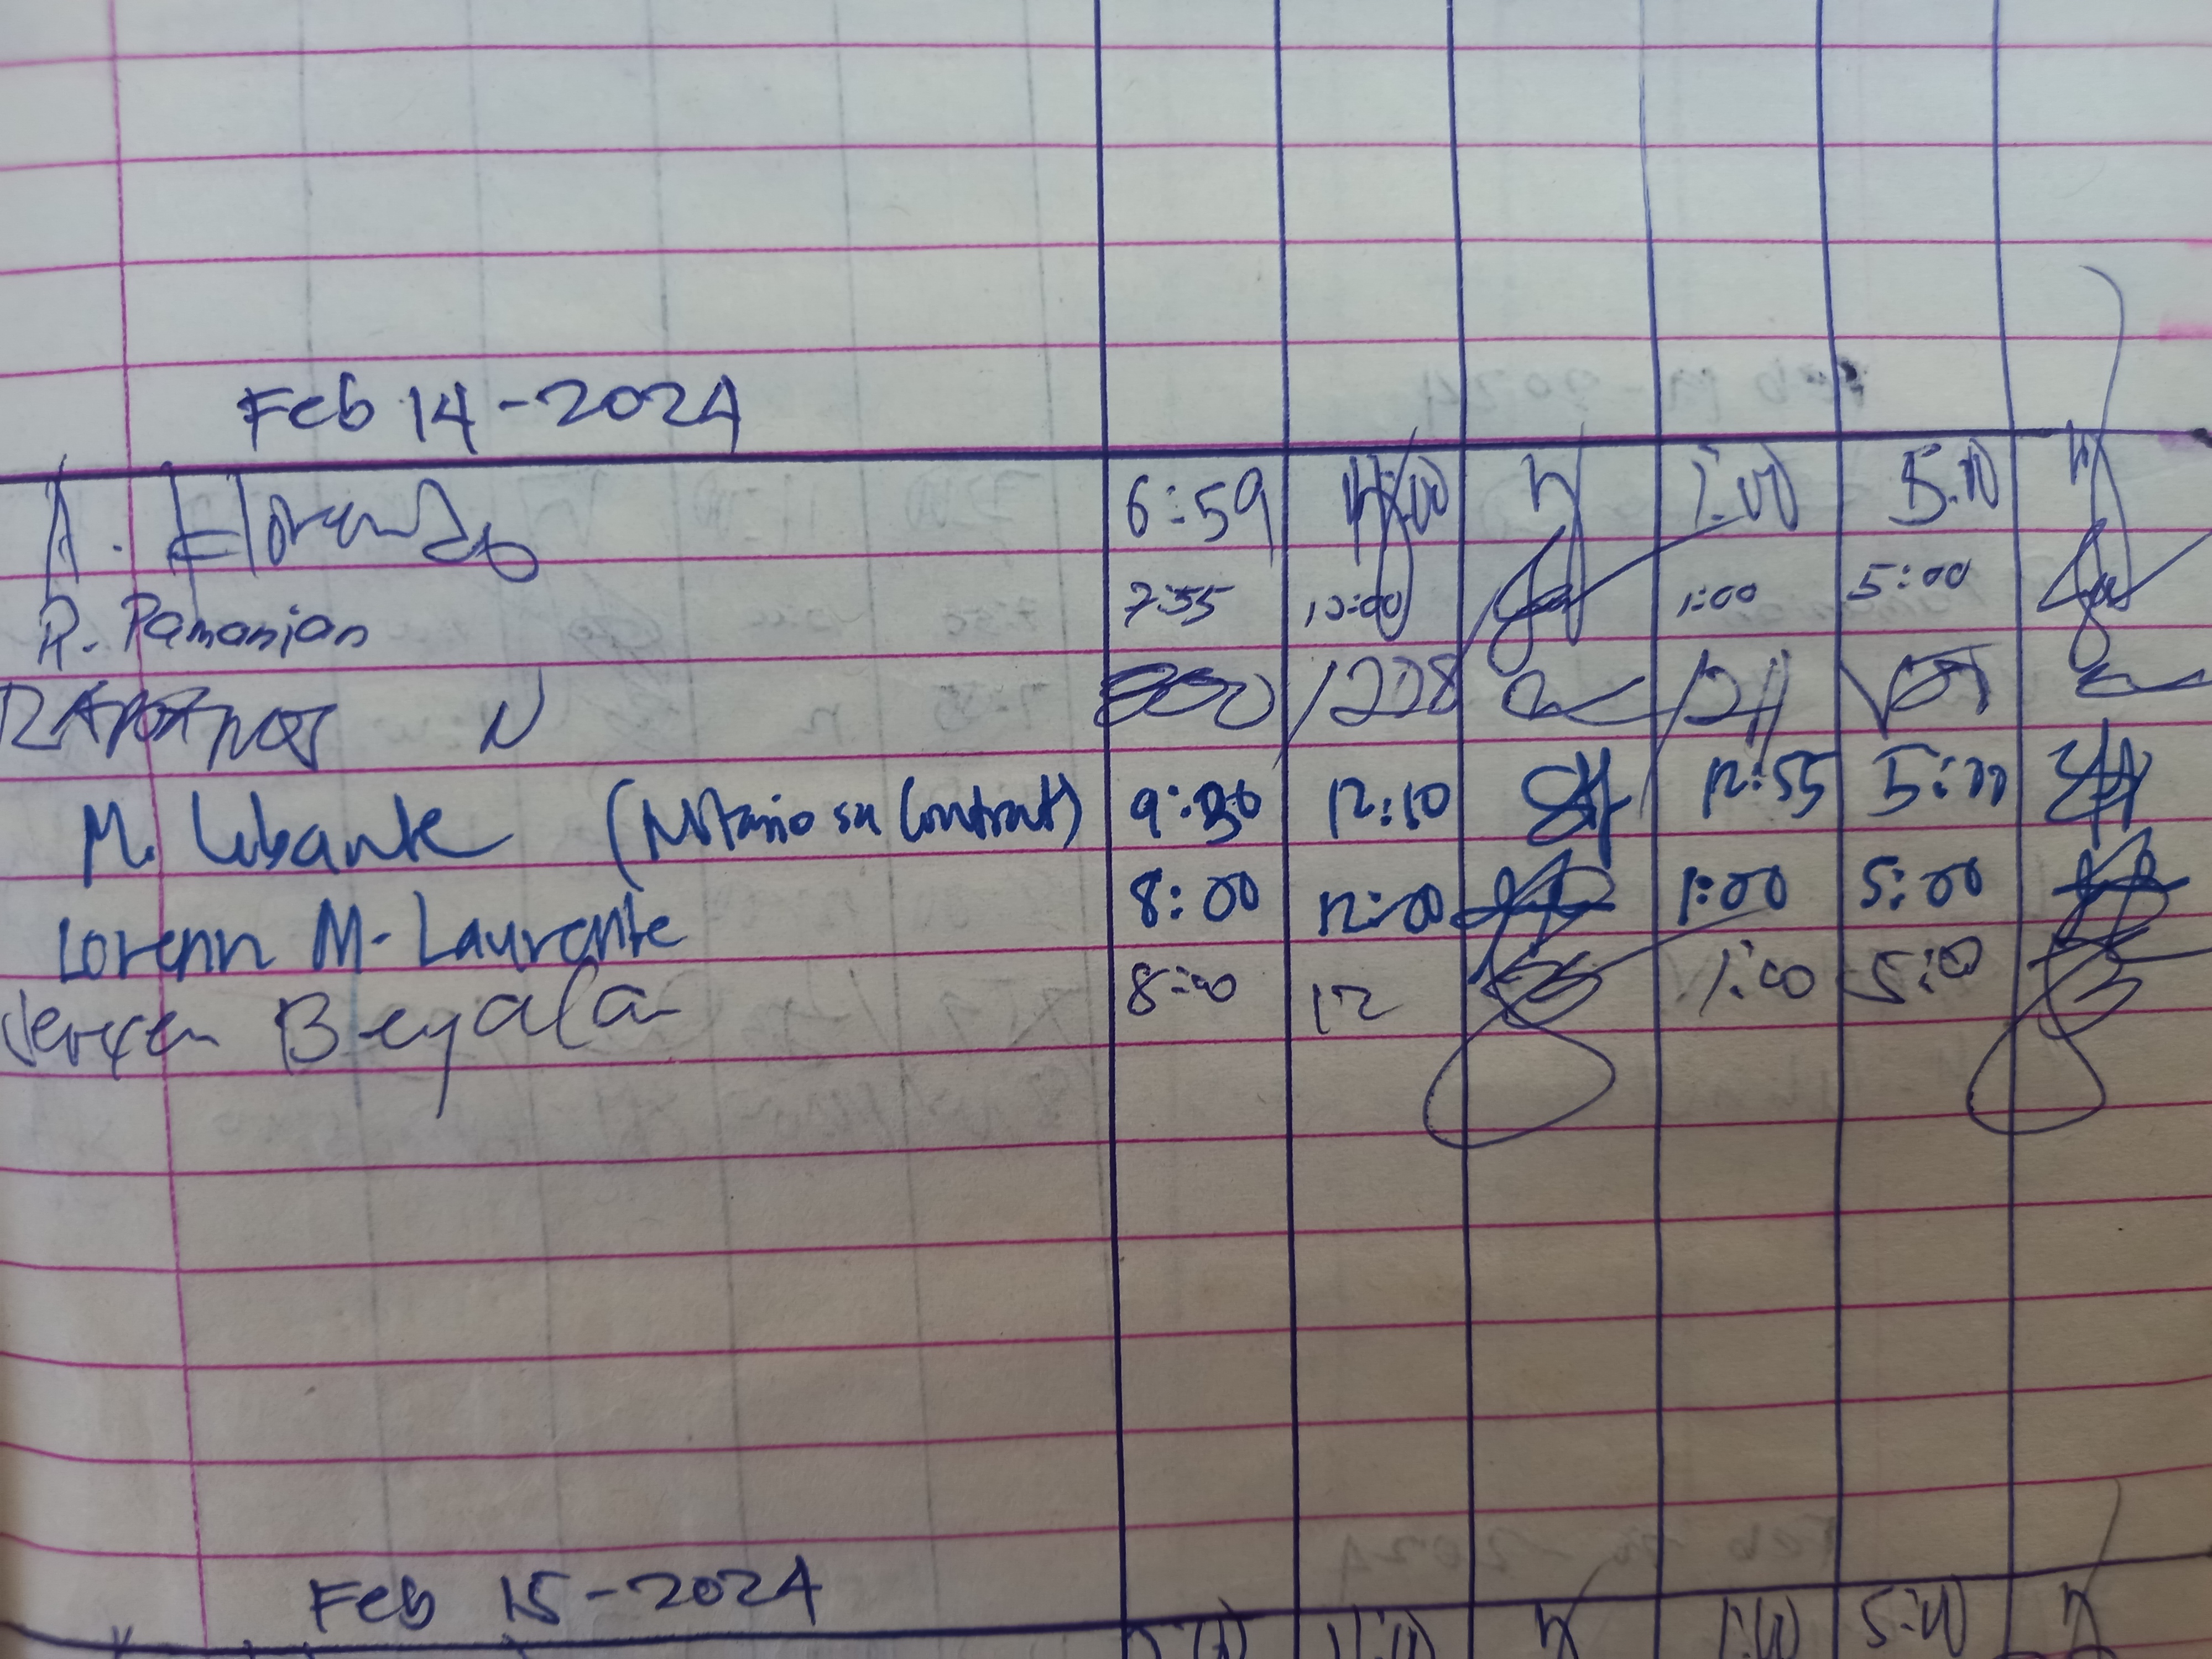 Feb 14-2024
A. Florendo 6:59 1:00 5:00
R. Pamanian 7:55 12:00 1:00 5:00
N 1208
M. Libante (Notario sa Contrat) 9:30 12:10 12:55 5:00
Lorenn M. Laurente 8:00 12:00 1:00 5:00
Begala 8:00 12 1:00 5:0
Feb 15-2024
11:00 1:00 5:00